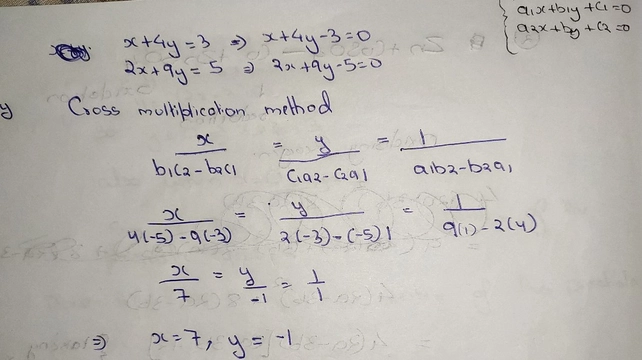 a1x+b1y+c1=0
a2x+by+c2=0
x+4y=3 ⇒ x+4y-3=0
2x+9y=5 ⇒ 2x+9y-5=0
y Cross multiplication method
x/(b1c2-b2c1) = y/(c1a2-c2a1) = 1/(a1b2-b2a1)
x/(4(-5)-9(-3)) = y/(2(-3)-(-5)1) = 1/(9(1)-2(4))
x/7 = y/-1 = 1/1
⇒ x=7, y=-1